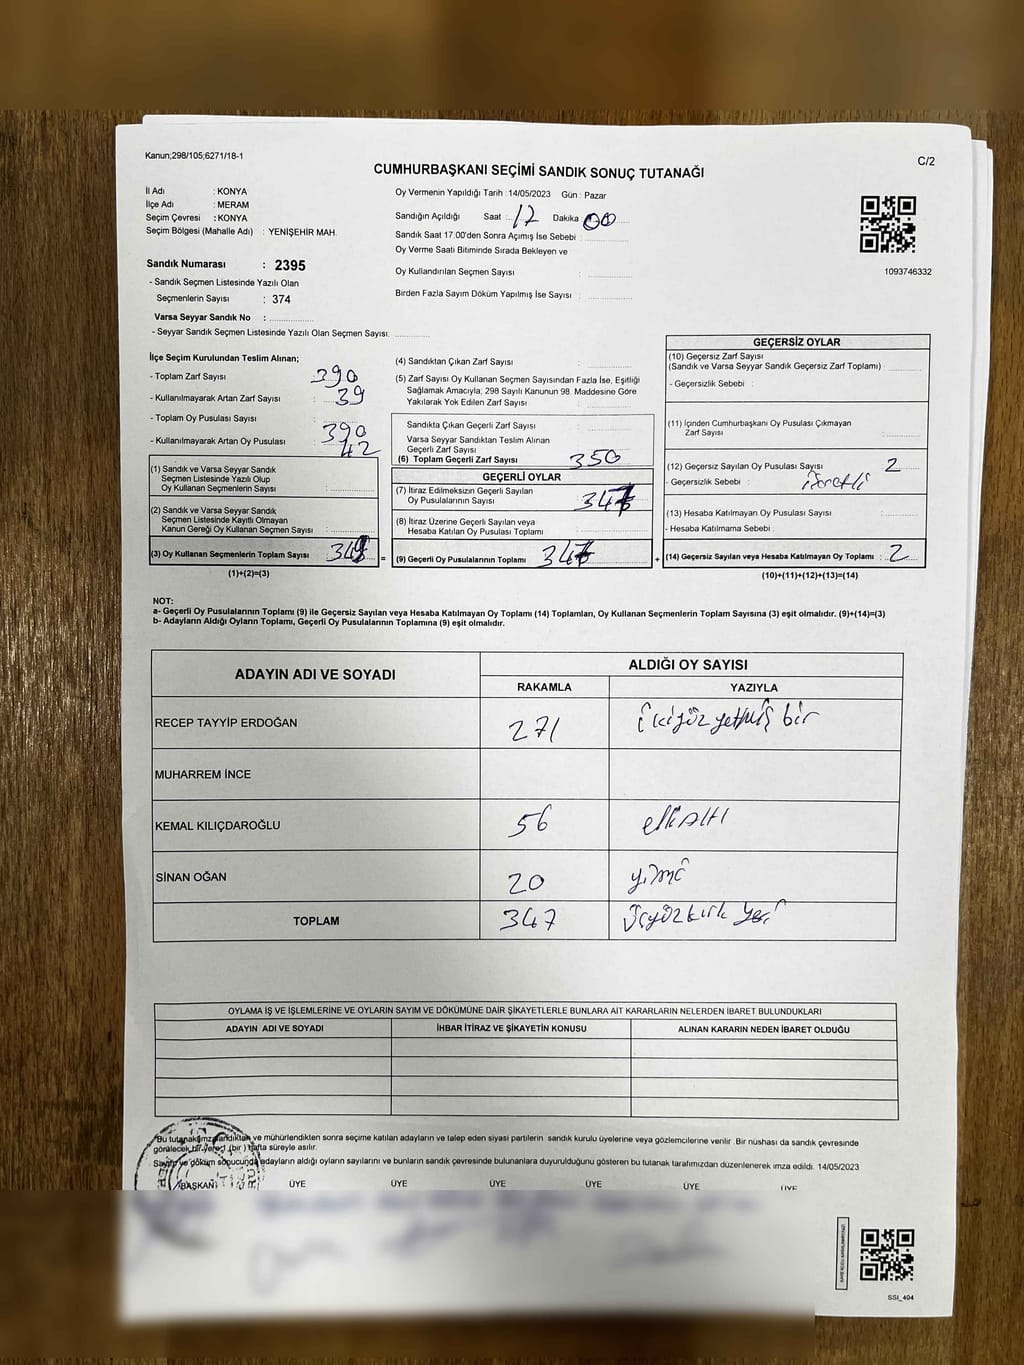 Kanun;298/105;6271/18-1
C/2
CUMHURBAŞKANI SEÇİMİ SANDIK SONUÇ TUTANAĞI
İl Adı : KONYA
İlçe Adı : MERAM
Seçim Çevresi : KONYA
Seçim Bölgesi (Mahalle Adı) : YENİŞEHİR MAH.
Sandık Numarası : 2395
- Sandık Seçmen Listesinde Yazılı Olan
Seçmenlerin Sayısı : 374
Varsa Seyyar Sandık No :
- Seyyar Sandık Seçmen Listesinde Yazılı Olan Seçmen Sayısı:
Oy Vermenin Yapıldığı Tarih : 14/05/2023 Gün : Pazar
Sandığın Açıldığı Saat : 17 Dakika : 00
Sandık Saat 17.00'den Sonra Açımış İse Sebebi :
Oy Verme Saati Bitiminde Sırada Bekleyen ve
Oy Kullandırılan Seçmen Sayısı :
Birden Fazla Sayım Döküm Yapılmış İse Sayısı :
1093746332
İlçe Seçim Kurulundan Teslim Alınan;
- Toplam Zarf Sayısı : 390
- Kullanılmayarak Artan Zarf Sayısı : 39
- Toplam Oy Pusulası Sayısı : 390
- Kullanılmayarak Artan Oy Pusulası : 42
(1) Sandık ve Varsa Seyyar Sandık
Seçmen Listesinde Yazılı Olup
Oy Kullanan Seçmenlerin Sayısı :
(2) Sandık ve Varsa Seyyar Sandık
Seçmen Listesinde Kayıtlı Olmayan
Kanun Gereği Oy Kullanan Seçmen Sayısı :
(3) Oy Kullanan Seçmenlerin Toplam Sayısı :
(1)+(2)=(3)
(4) Sandıktan Çıkan Zarf Sayısı :
(5) Zarf Sayısı Oy Kullanan Seçmen Sayısından Fazla İse, Eşitliği
Sağlamak Amacıyla; 298 Sayılı Kanunun 98. Maddesine Göre
Yakılarak Yok Edilen Zarf Sayısı :
Sandıkta Çıkan Geçerli Zarf Sayısı :
Varsa Seyyar Sandıktan Teslim Alınan
Geçerli Zarf Sayısı :
(6) Toplam Geçerli Zarf Sayısı : 350
GEÇERLİ OYLAR
(7) İtiraz Edilmeksizin Geçerli Sayılan
Oy Pusulalarının Sayısı : 347
(8) İtiraz Üzerine Geçerli Sayılan veya
Hesaba Katılan Oy Pusulası Toplamı :
(9) Geçerli Oy Pusulalarının Toplamı : 347
GEÇERSİZ OYLAR
(10) Geçersiz Zarf Sayısı
(Sandık ve Varsa Seyyar Sandık Geçersiz Zarf Toplamı) :
- Geçersizlik Sebebi :
(11) İçinden Cumhurbaşkanı Oy Pusulası Çıkmayan
Zarf Sayısı :
(12) Geçersiz Sayılan Oy Pusulası Sayısı : 2
- Geçersizlik Sebebi :
(13) Hesaba Katılmayan Oy Pusulası Sayısı :
- Hesaba Katılmama Sebebi :
(14) Geçersiz Sayılan veya Hesaba Katılmayan Oy Toplamı : 2
(10)+(11)+(12)+(13)=(14)
NOT:
a- Geçerli Oy Pusulalarının Toplamı (9) ile Geçersiz Sayılan veya Hesaba Katılmayan Oy Toplamı (14) Toplamları, Oy Kullanan Seçmenlerin Toplam Sayısına (3) eşit olmalıdır. (9)+(14)=(3)
b- Adayların Aldığı Oyların Toplamı, Geçerli Oy Pusulalarının Toplamına (9) eşit olmalıdır.
ADAYIN ADI VE SOYADI ALDIĞI OY SAYISI
RAKAMLA YAZIYLA
RECEP TAYYİP ERDOĞAN 271 ikiyüz yetmiş bir
MUHARREM İNCE
KEMAL KILIÇDAROĞLU 56 elli altı
SİNAN OĞAN 20 yirmi
TOPLAM 347 üçyüz kırk yedi
OYLAMA İŞ VE İŞLEMLERİNE VE OYLARIN SAYIM VE DÖKÜMÜNE DAİR ŞİKAYETLERLE BUNLARA AİT KARARLARIN NELERDEN İBARET BULUNDUKLARI
ADAYIN ADI VE SOYADI İHBAR İTİRAZ VE ŞİKAYETİN KONUSU ALINAN KARARIN NEDEN İBARET OLDUĞU
Bu tutanak imzalandıktan ve mühürlendikten sonra seçime katılan adayların ve talep eden siyasi partilerin sandık kurulu üyelerine veya gözlemcilerine verilir. Bir nüshası da sandık çevresinde
görülecek bir yere 1 (bir) hafta süreyle asılır.
Sayım ve döküm sonucunda adayların aldığı oyların sayılarını ve bunların sandık çevresinde bulunanlara duyurulduğunu gösteren bu tutanak tarafımızdan düzenlenerek imza edildi. 14/05/2023
BAŞKAN ÜYE ÜYE ÜYE ÜYE ÜYE ÜYE
SSI_404